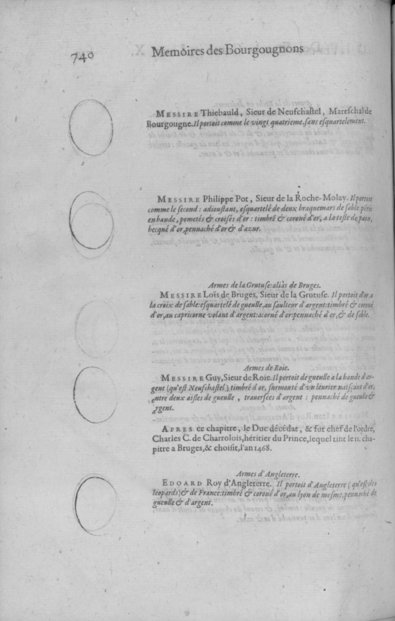 740
Memoires des Bourgougnons
MESSIRE Thiebauld, Sieur de Neufchastel, Mareschal de
Bourgougne. Il portoit comme le vingt quatrieme, sans esquartelement.
MESSIRE Philippe Pot, Sieur de la Roche-Molay. Il portoit
comme le second: adioustant, esquartelé de deux braquemars de sable péris
en bande, pometés & croisés d'or: timbré & coroné d'or, a la teste de paon,
becqué d'or, pennaché d'or & d'azur.
Armes de la Grotuse aliàs de Bruges.
MESSIRE Loïs de Bruges, Sieur de la Grotuse. Il portoit d'or a
la croix de sable: esquartelé de gueulle, au saulteur d'argent: timbré & coroné
d'or, au capricorne volant d'argent: acorné d'or: pennaché d'or, & de sable.
Armes de Roie.
MESSIRE Guy, Sieur de Roie. Il portoit de gueulle a la bande d'ar-
gent (qu'est Neufchastel): timbré d'or, surmonté d'vn leurier naissant d'or,
entre deux aisles de gueulle, trauersees d'argent: pennaché de gueulle &
argent.
APRES ce chapitre, le Duc décédat, & fut chef de l'ordre,
Charles C. de Charrolois, héritier du Prince, lequel tint le 11. cha-
pitre a Bruges, & choisit, l'an 1468.
Armes d'Angleterre.
EDOARD Roy d'Angleterre. Il portoit d'Angleterre (qu'est des
léopards) & de France: timbré & coroné d'or, au lyon de mesme, pennaché de
gueulle & d'argent.